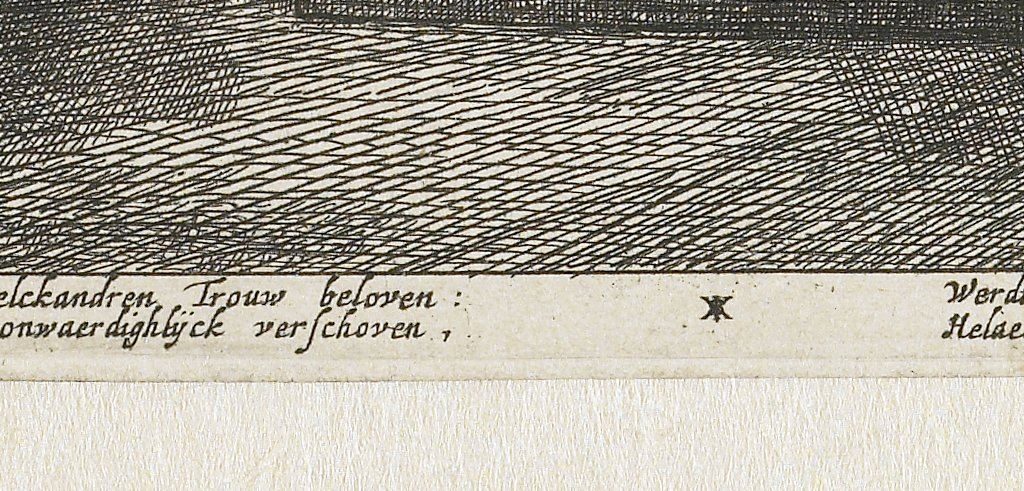 elckandren Trouw beloven :
onwaerdighlÿck verſchoven ,
Werd
Helae